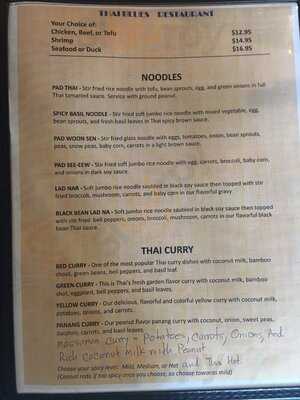 THAI BLUES RESTAURANT
Your Choice of:
Chicken, Beef, or Tofu $12.95
Shrimp $14.95
Seafood or Duck $16.95
NOODLES
PAD THAI - Stir fried rice noodle with tofu, bean sprouts, egg, and green onions in full
Thai tamarind sauce. Service with ground peanut.
SPICY BASIL NOODLE - Stir fried soft jumbo rice noodle with mixed vegetable, egg,
bean sprouts, and fresh basil leaves in Thai spicy brown sauce.
PAD WOON SEN - Stir fried glass noodle with eggs, tomatoes, onion, bean sprouts,
peas, snow peas, baby corn, carrots in a light brown sauce.
PAD SEE-EEW - Stir fried soft jumbo rice noodle with egg, carrots, broccoli, baby corn,
and onions in dark soy sauce.
LAD NAR - Soft jumbo rice noodle sautéed in black soy sauce then topped with stir
fried broccoli, mushroom, carrots, and baby corn in our flavorful gravy
BLACK BEAN LAD NA - Soft jumbo rice noodle sautéed in black soy sauce then topped
with stir fried bell peppers, onions, broccoli, mushroom, carrots in our flavorful black
bean Thai sauce.
THAI CURRY
RED CURRY - One of the most popular Thai curry dishes with coconut milk, bamboo
shoot, green beans, bell peppers, and basil leaf.
GREEN CURRY - This is Thai's fresh garden flavor curry with coconut milk, bamboo
shot, eggplant, bell peppers, and basil leaves.
YELLOW CURRY - Our delicious, flavorful and colorful yellow curry with coconut milk,
potatoes, onions, and carrots.
PANANG CURRY - Our peanut flavor panang curry with coconut, onion, sweet peas,
zucchini, carrots, and basil leaves
massaman Curry - Potatoes, Carrots, Onions, And
Rich Coconut Milk with Peanut
Choose your spicy level: Mild, Medium, or Hot and Thai Hot
(Cannot redo if too spicy once you choose, so choose towards mild)